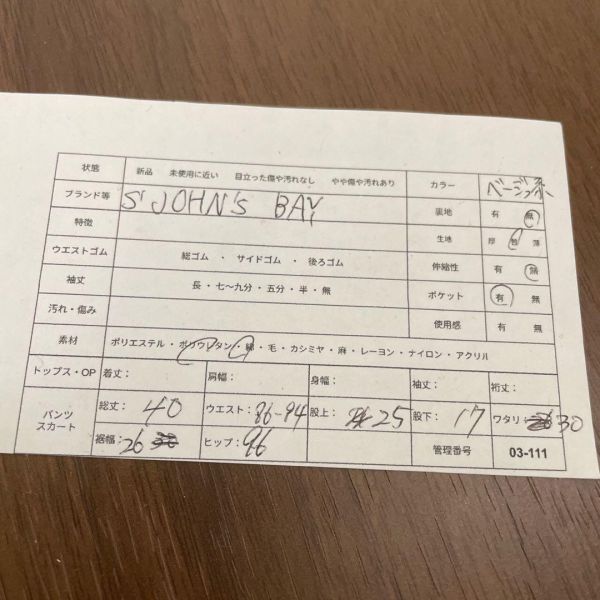 状態 新品 未使用に近い 目立った傷や汚れなし やや傷や汚れあり カラー ベージュ系
ブランド等 ST JOHN'S BAY 裏地 有 無
特徴 生地 厚 普 薄
ウエストゴム 総ゴム ・ サイドゴム ・ 後ろゴム 伸縮性 有 無
袖丈 長・七～九分・五分・半・無 ポケット 有 無
汚れ・傷み 使用感 有 無
素材 ポリエステル・ポリウレタン・綿・毛・カシミヤ・麻・レーヨン・ナイロン・アクリル
トップス・OP 着丈： 肩幅： 身幅： 袖丈： 裄丈：
パンツ スカート 総丈： 40 ウエスト： 86-94 股上： 25 股下： 17 ワタリ： 30
裾幅： 26 ヒップ： 96 管理番号 03-111